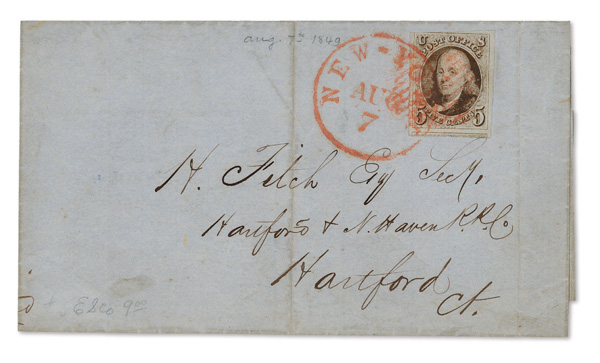 aug. 7th 1849
NEW-YO
AUG
7
U S
POST OFFICE
FIVE CENTS
5 5
H. Fitch Esq Secy,
Hartford & N. Haven R.R. Co
Hartford
Ct.